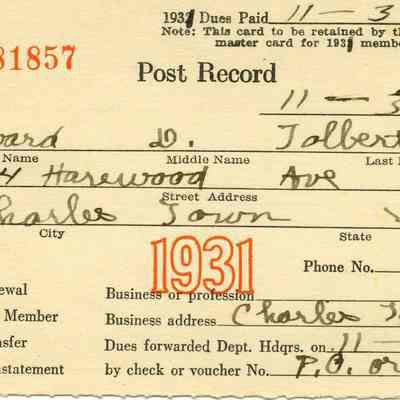 1931 Dues Paid 11 - 3
Note: This card to be retained by th
master card for 1931 membe
81857
Post Record
11 - 3
ward D. Tolbert
Name Middle Name Last
4 Harewood Ave
Street Address
Charles Town
City State
1931
Phone No.
ewal Business or profession
Member Business address Charles T
sfer Dues forwarded Dept. Hdqrs. on 11 -
nstatement by check or voucher No. P.O. or